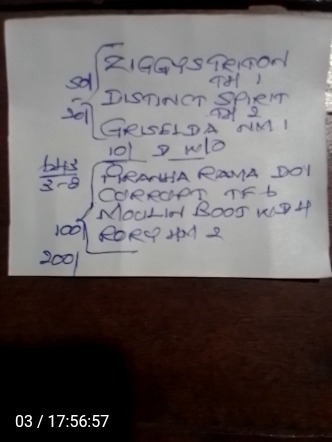 ZIGGYS TRITON
50/ TM 1
20/ DISTINCT SPIRIT
TM 2
GRISELDA NM 1
10/ D W/O
PIRANHA RAMA DO1
3-8
CORROPT TF 6
MOULIN BOOJ WD 4
100/ RORY HM 2
200/
03 / 17:56:57